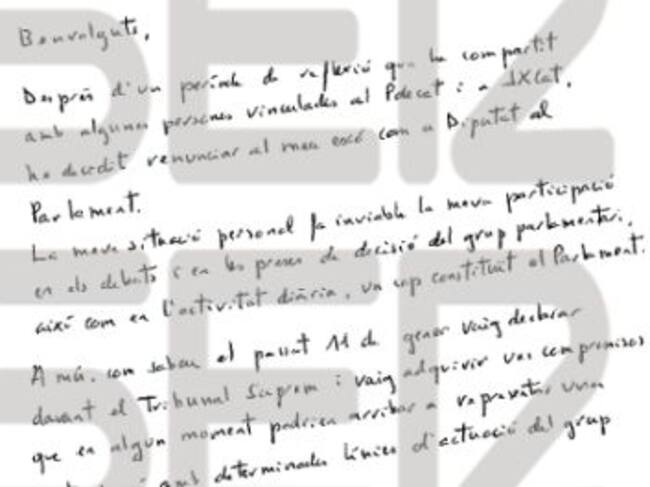 Benvolguts,
Després d'un període de reflexió que he compartit
amb algunes persones vinculades al Pdecat i a JXCat,
he decidit renunciar al meu escó com a Diputat al
Parlament.
La meva situació personal fa inviable la meva participació
en els debats i en les preses de decisió del grup parlamentari,
així com en l'activitat diària, un cop constituït el Parlament.
A més, com sabeu el passat 11 de gener vaig declarar
davant el Tribunal Suprem i vaig adquirir uns compromisos
que en algun moment podrien arribar a representar una
amb determinades línies d'actuació del grup